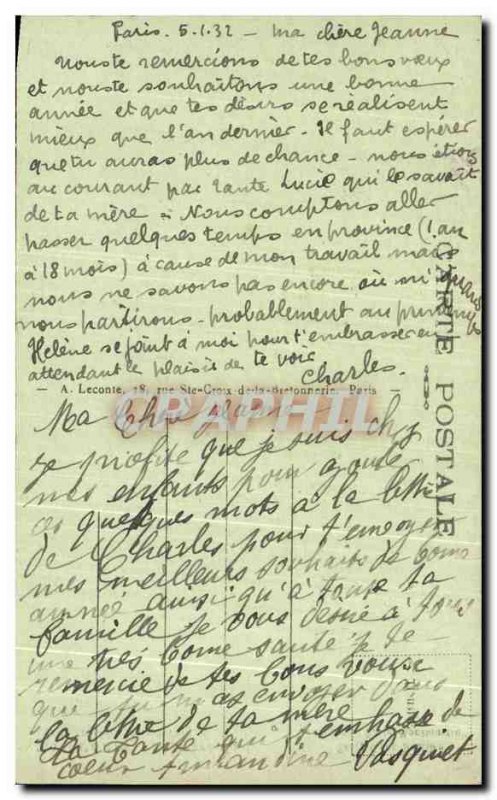 Paris. 5.1.32 - Ma chère Jeanne
Nous te remercions de tes bons vœux
et nous te souhaitons une bonne
année et que tes désirs se réalisent
mieux que l'an dernier. Il faut espérer
que tu auras plus de chance - nous étions
au courant par tante Lucie qui le savait
de ta mère. Nous comptons aller
passer quelques temps en province (1 an
à 18 mois) à cause de mon travail mais
nous ne savons pas encore où ni quand
nous partirons - probablement au printemps
Hélène se joint à moi pour t'embrasser en
attendant le plaisir de te voir
Charles.
CARTE POSTALE
- A. Leconte, 38, rue Ste-Croix-de-la-Bretonnerie, Paris -
CARAPHIL
Ma chère
je profite que je suis chez
mes enfants pour ajouter
ces quelques mots à la lettre
de Charles pour t'envoyer
mes meilleurs souhaits de bonne
année ainsi qu'à toute ta
famille je vous désire à tous
une très bonne santé je te
remercie de tes bons voeux
que tu m'as envoyer dans
la lettre de ta mère
Ta tante qui t'embrasse de
coeur Amandine Pasquet